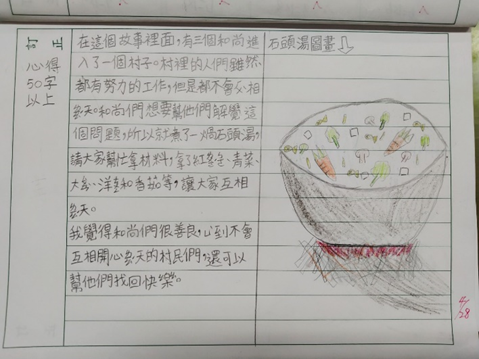 訂正
心得
50字
以上
在這個故事裡面,有三個和尚進
入了一個村子。村裡的人們雖然
都有努力的工作,但是都不會互相
聊天。和尚們想要幫他們解覺這
個問題,所以就煮了一鍋石頭湯,
請大家幫忙拿材料,拿了紅蘿、青菜、
大、洋和香菇等,讓大家互相
聊天。
我覺得和尚們很善良,到不會
互相開心聊天的村民們,還可以
幫他們找回快樂。
石頭湯圖畫
4/28